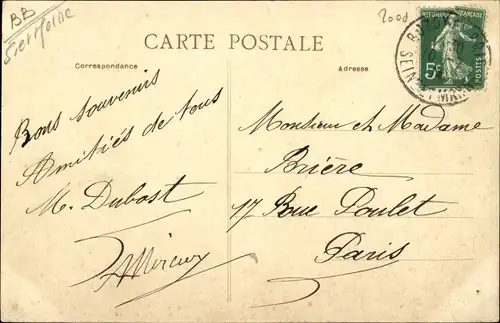 BB
Seine Marne
2000
CARTE POSTALE
Correspondance
Adresse
FRANÇAISE
5c
POSTES
SEINE
Bons souvenirs
Amitiés de tous
M. Dubost
Monsieur et Madame
Brière
17 Rue Poulet
Paris